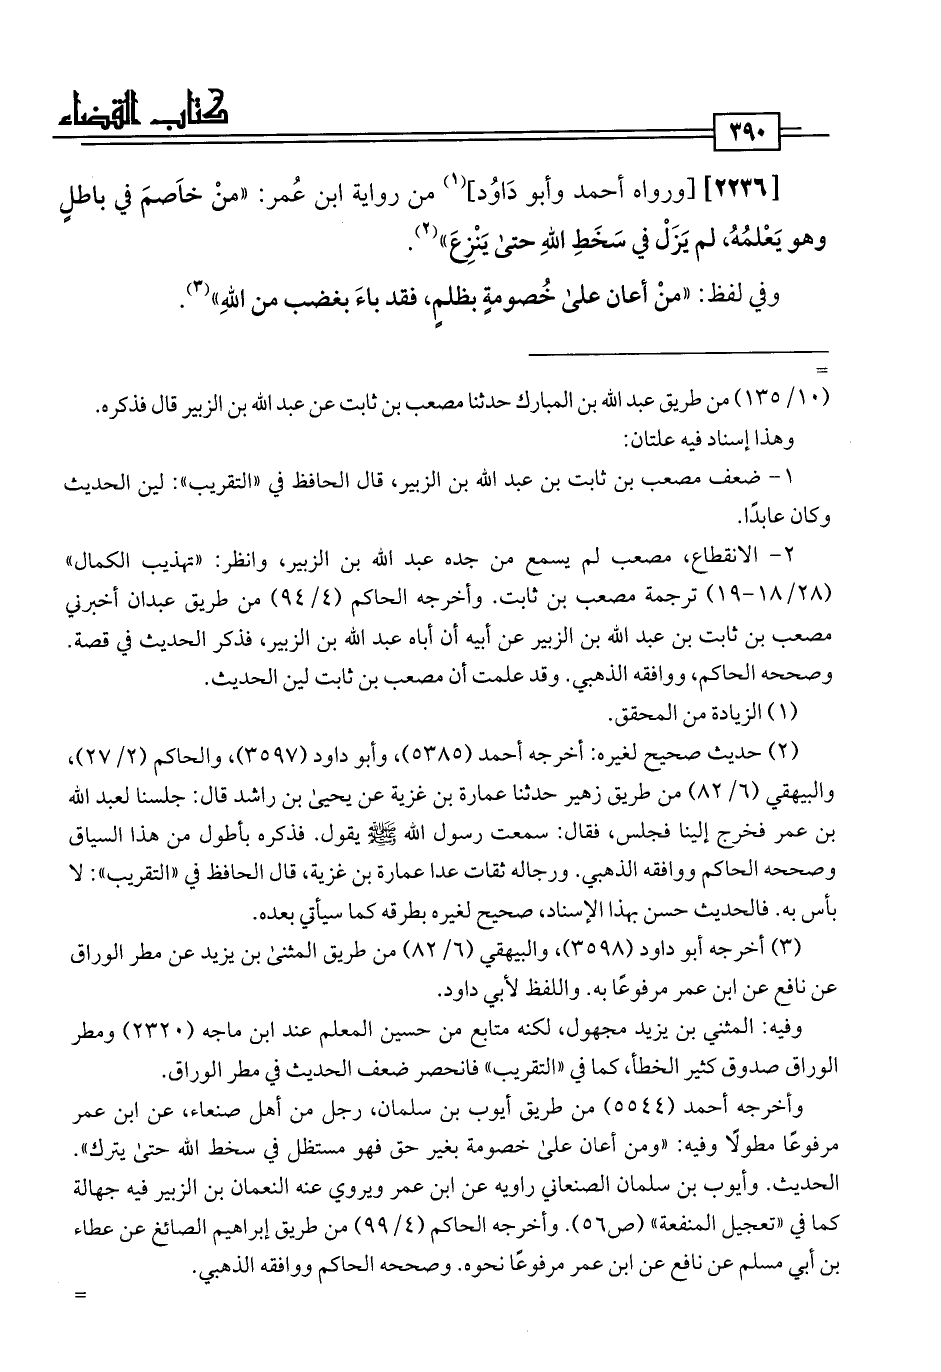 كتاب القضاء
٣٩٠
[٢٢٣٦] [ورواه أحمد وأبو دَاوُد](١) من رواية ابن عُمر: «منْ خاَصمَ في باطلٍ
وهو يَعْلمُهُ، لم يَزَلْ في سَخَطِ اللهِ حتىٰ يَنْزِعَ»(٢).
وفي لفظ: «منْ أعان علىٰ خُصومةٍ بظلمٍ، فقد باءَ بغضب من اللهِ»(٣).
=
(١٠/ ١٣٥) من طريق عبد الله بن المبارك حدثنا مصعب بن ثابت عن عبد الله بن الزبير قال فذكره.
وهذا إسناد فيه علتان:
١- ضعف مصعب بن ثابت بن عبد الله بن الزبير، قال الحافظ في «التقريب»: لين الحديث
وكان عابدًا.
٢- الانقطاع، مصعب لم يسمع من جده عبد الله بن الزبير، وانظر: «تهذيب الكمال»
(٢٨/ ١٨-١٩) ترجمة مصعب بن ثابت. وأخرجه الحاكم (٤/ ٩٤) من طريق عبدان أخبرني
مصعب بن ثابت بن عبد الله بن الزبير عن أبيه أن أباه عبد الله بن الزبير، فذكر الحديث في قصة.
وصححه الحاكم، ووافقه الذهبي. وقد علمت أن مصعب بن ثابت لين الحديث.
(١) الزيادة من المحقق.
(٢) حديث صحيح لغيره: أخرجه أحمد (٥٣٨٥)، وأبو داود (٣٥٩٧)، والحاكم (٢/ ٢٧)،
والبيهقي (٦/ ٨٢) من طريق زهير حدثنا عمارة بن غزية عن يحيىٰ بن راشد قال: جلسنا لعبد الله
بن عمر فخرج إلينا فجلس، فقال: سمعت رسول الله ﷺ يقول. فذكره بأطول من هذا السياق
وصححه الحاكم ووافقه الذهبي. ورجاله ثقات عدا عمارة بن غزية، قال الحافظ في «التقريب»: لا
بأس به. فالحديث حسن بهذا الإسناد، صحيح لغيره بطرقه كما سيأتي بعده.
(٣) أخرجه أبو داود (٣٥٩٨)، والبيهقي (٦/ ٨٢) من طريق المثنىٰ بن يزيد عن مطر الوراق
عن نافع عن ابن عمر مرفوعًا به. واللفظ لأبي داود.
وفيه: المثني بن يزيد مجهول، لكنه متابع من حسين المعلم عند ابن ماجه (٢٣٢٠) ومطر
الوراق صدوق كثير الخطأ، كما في «التقريب» فانحصر ضعف الحديث في مطر الوراق.
وأخرجه أحمد (٥٥٤٤) من طريق أيوب بن سلمان، رجل من أهل صنعاء، عن ابن عمر
مرفوعًا مطولًا وفيه: «ومن أعان علىٰ خصومة بغير حق فهو مستظل في سخط الله حتىٰ يترك».
الحديث. وأيوب بن سلمان الصنعاني راويه عن ابن عمر ويروي عنه النعمان بن الزبير فيه جهالة
كما في «تعجيل المنفعة» (ص٥٦). وأخرجه الحاكم (٤/ ٩٩) من طريق إبراهيم الصائغ عن عطاء
بن أبي مسلم عن نافع عن ابن عمر مرفوعًا نحوه. وصححه الحاكم ووافقه الذهبي.
=